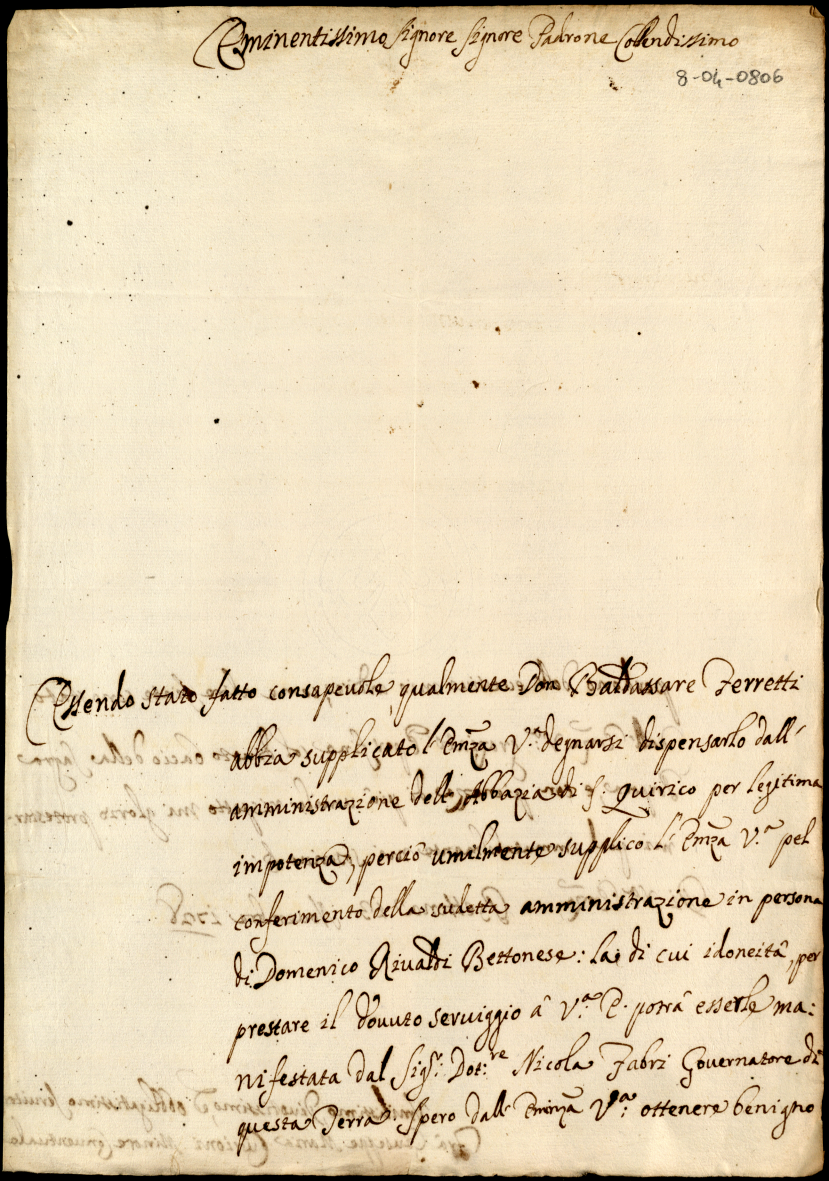 Eminentissimo Signore Signore Padrone Collendissimo
8-04-0806
Essendo stato fatto consapevole, qualmente Don Baldassare Ferretti
abbia supplicato l'Emza V.a degnarsi dispensarlo dall'
amministrazione dell'Abbazia di S. Quirico per legitima
impotenza, perciò umilmente supplico l'Emza V.a pel
conferimento della sudetta amministrazione in persona
di Domenico Rivaldi Bettonese: la di cui idoneità, per
prestare il dovuto serviggio à V.a E. potrà esserle ma:
nifestata dal Sig.r Dot:re Nicola Fabri Governatore di
questa Terra. Spero dall'Eminza V.a: ottenere benigno